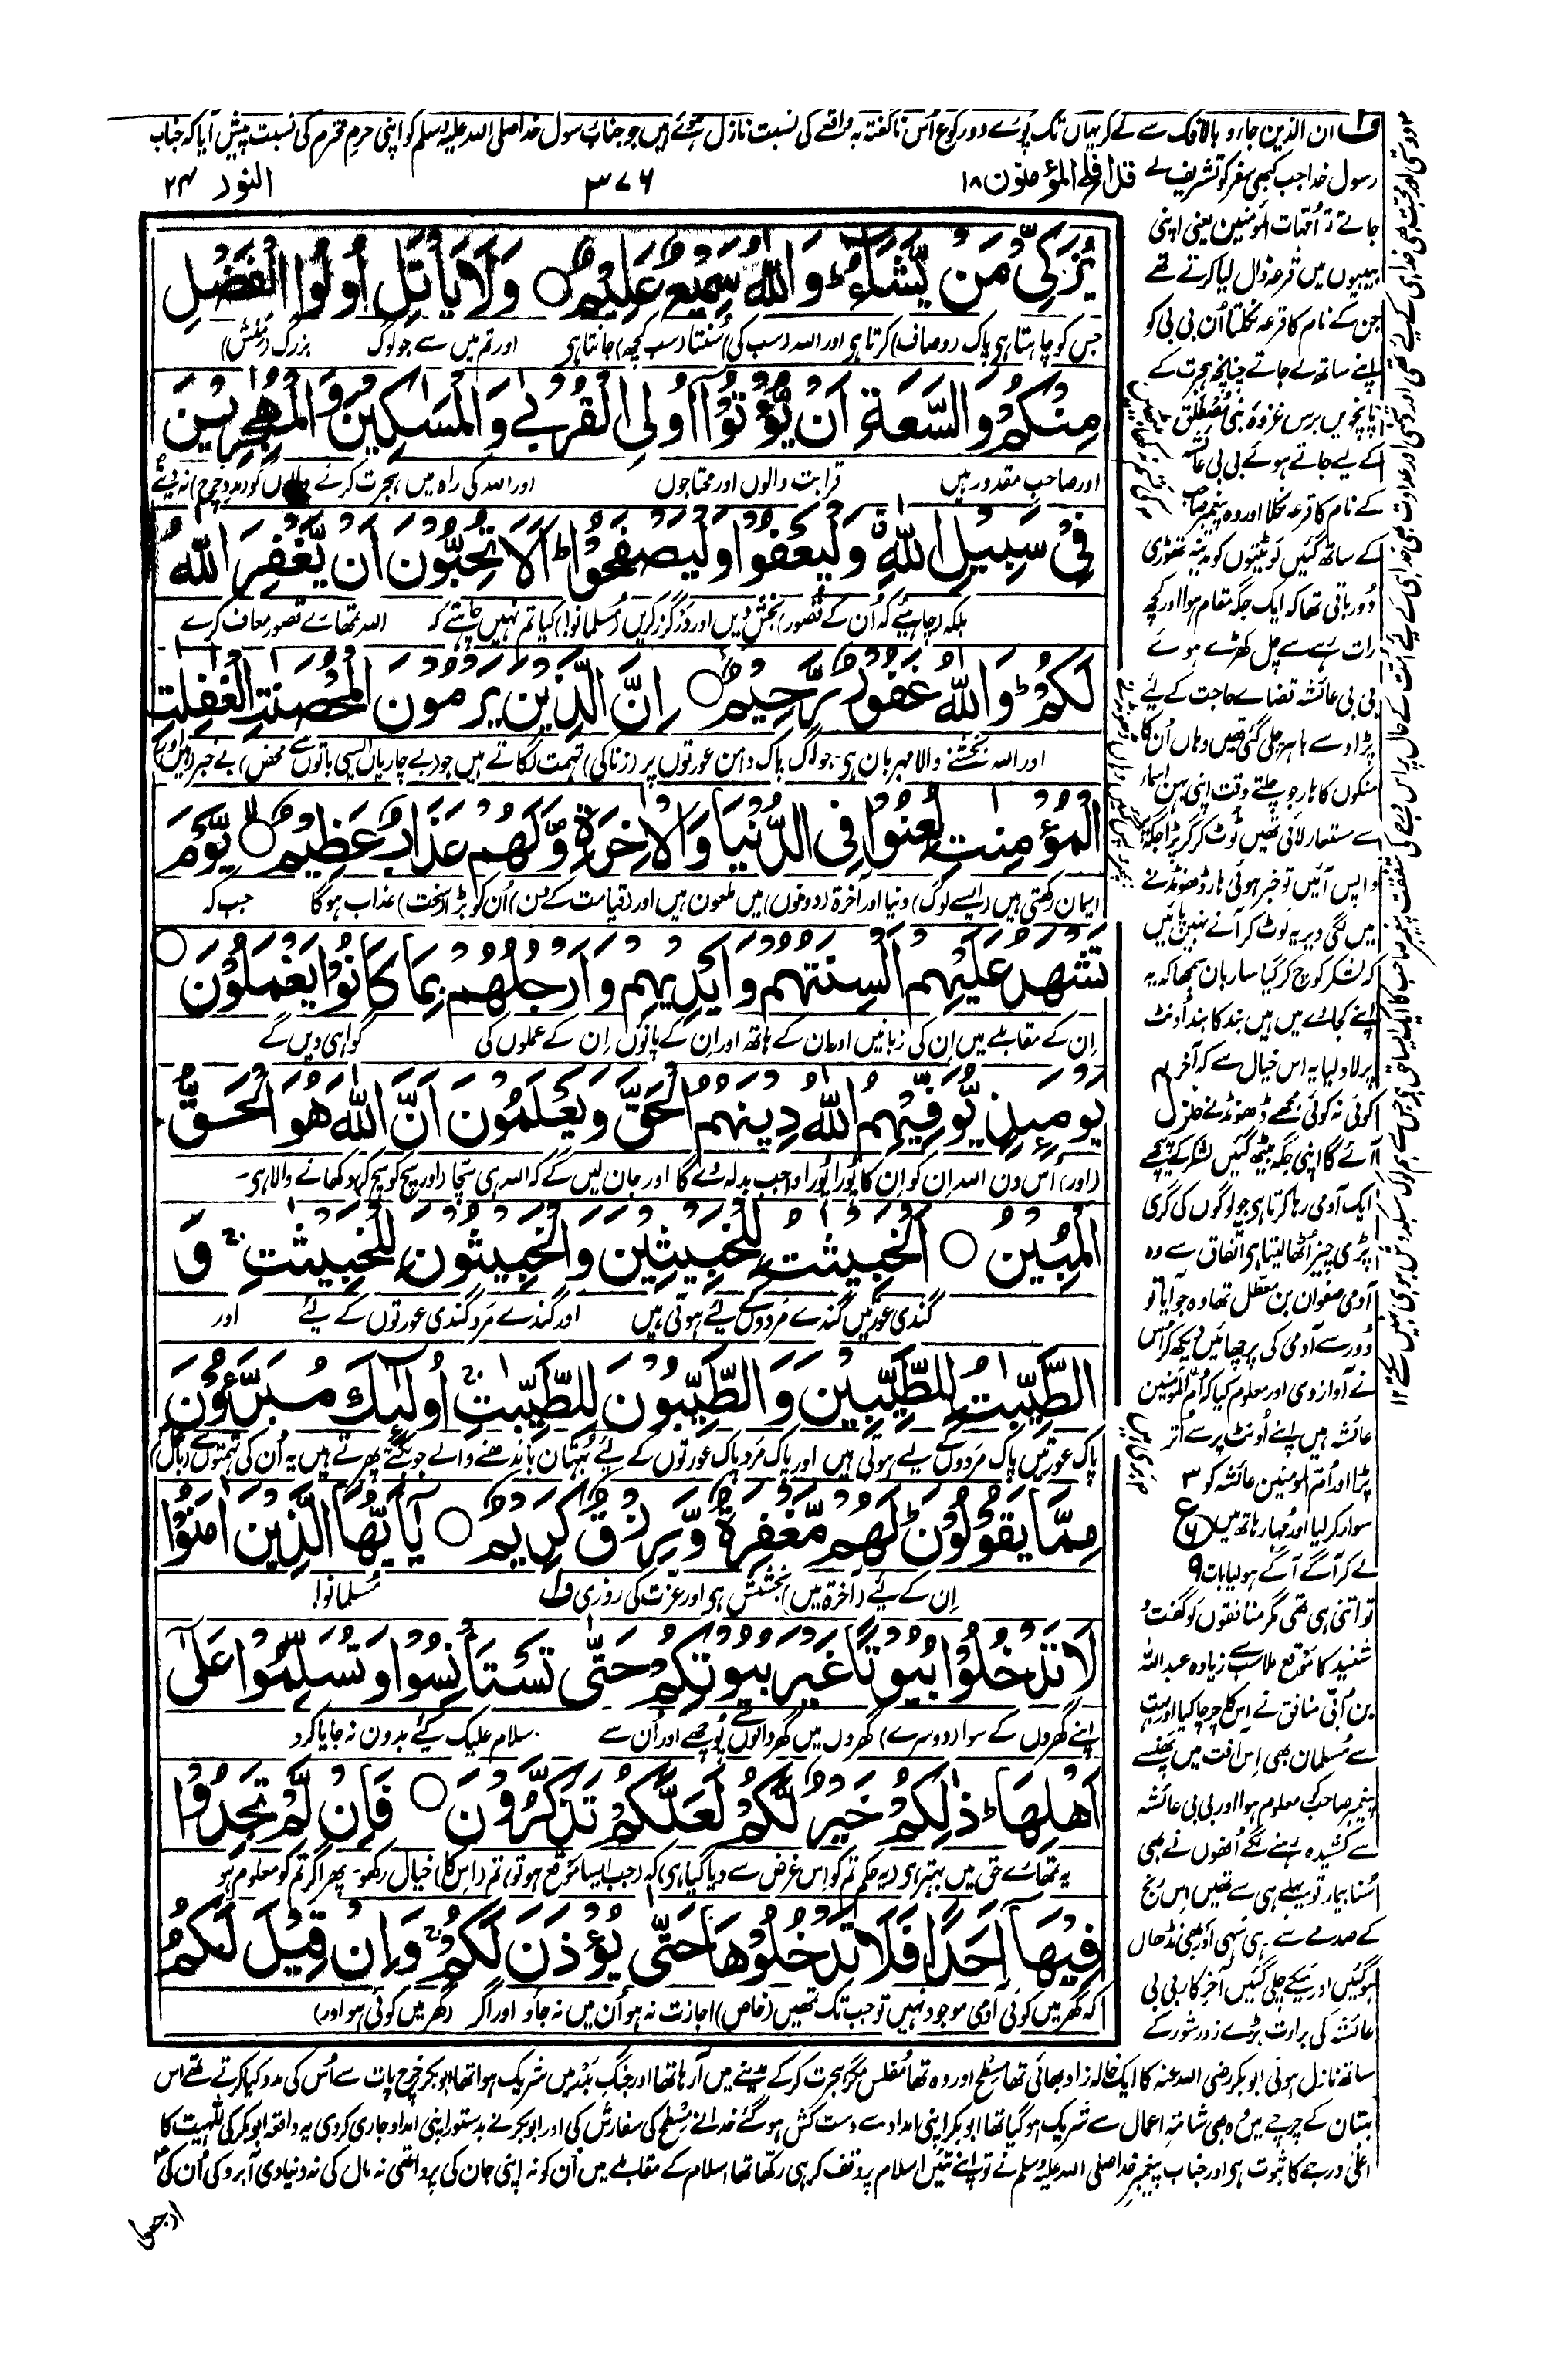 ف۱ ان الذین جاءو بالافک سے لے کر یہاں تک پورے دو رکوع اُس ناگفتہ بہ واقعے کی نسبت نازل ہوئے ہیں جو جناب رسول خدا صلی اللہ علیہ وسلم کو اپنی حرم محترم کی نسبت پیش آیا کہ جناب
رسول خدا جب کبھی سفر کو تشریف لے
قد افلح المؤمنون ۱۸
۳۷۶
النور ۲۴
یُزَكِّیْ مَنْ یَّشَآءُ ؕ وَ اللّٰهُ سَمِیْعٌ عَلِیْمٌ ○ وَ لَا یَاْتَلِ اُولُوا الْفَضْلِ
جس کو چاہتا ہی پاک (و صاف) کرتا ہی اور اللہ (سب کی) سُنتا (سب کچھ) جانتا ہی اور تم میں سے جو لوگ بزرگ (منش)
مِنْكُمْ وَ السَّعَةِ اَنْ یُّؤْتُوْۤا اُولِی الْقُرْبٰى وَ الْمَسٰكِیْنَ وَ الْمُهٰجِرِیْنَ
اور صاحب مقدور ہیں قرابت والوں اور محتاجوں اور اللہ کی راہ میں ہجرت کرنے والوں کو (مدد خرچ) نہ دینے
فِیْ سَبِیْلِ اللّٰهِ ۪ وَ لْیَعْفُوْا وَ لْیَصْفَحُوْا ؕ اَلَا تُحِبُّوْنَ اَنْ یَّغْفِرَ اللّٰهُ
بلکہ (چاہیے کہ اُن کے قصور) بخش دیں اور درگزر کریں (مسلمانو!) کیا تم نہیں چاہتے کہ اللہ تمھارے قصور معاف کرے
لَكُمْ ؕ وَ اللّٰهُ غَفُوْرٌ رَّحِیْمٌ ○ اِنَّ الَّذِیْنَ یَرْمُوْنَ الْمُحْصَنٰتِ الْغٰفِلٰتِ
اور اللہ بخشنے والا مہربان ہی۔ جو لوگ پاک دامن عورتوں پر (زنا کی) تہمت لگاتے ہیں جو (بے چاریاں ایسی باتوں سے محض) بے خبر (ہیں اور)
الْمُؤْمِنٰتِ لُعِنُوْا فِی الدُّنْیَا وَ الْاٰخِرَةِ ۪ وَ لَهُمْ عَذَابٌ عَظِیْمٌ ○ یَّوْمَ
ایمان رکھتی ہیں (ایسے لوگ) دنیا اور آخرۃ (دونوں) میں ملعون ہیں اور (قیامت کے دن) اُن کو بڑا (سخت) عذاب ہوگا جب کہ
تَشْهَدُ عَلَیْهِمْ اَلْسِنَتُهُمْ وَ اَیْدِیْهِمْ وَ اَرْجُلُهُمْ بِمَا كَانُوْا یَعْمَلُوْنَ ○
اِن کے مقابلے میں اِن کی زبانیں اور ان کے ہاتھ اور اِن کے پانوں اِن کے عملوں کی گواہی دیں گے
یَوْمَىِٕذٍ یُّوَفِّیْهِمُ اللّٰهُ دِیْنَهُمُ الْحَقَّ وَ یَعْلَمُوْنَ اَنَّ اللّٰهَ هُوَ الْحَقُّ
(اور) اُس دن اللہ اِن کو اِن کا پورا پورا واجب بدلہ دے گا اور جان لیں گے کہ اللہ ہی سچا (اور سچ کو سچ کر) دکھانے والا ہی۔
الْمُبِیْنُ ○ اَلْخَبِیْثٰتُ لِلْخَبِیْثِیْنَ وَ الْخَبِیْثُوْنَ لِلْخَبِیْثٰتِ ۚ وَ
گندی عورتیں گندے مردوں کے لیے ہوتی ہیں اور گندے مرد گندی عورتوں کے لیے اور
الطَّیِّبٰتُ لِلطَّیِّبِیْنَ وَ الطَّیِّبُوْنَ لِلطَّیِّبٰتِ ۚ اُولٰٓىِٕكَ مُبَرَّءُوْنَ
پاک عورتیں پاک مردوں کے لیے ہوتی ہیں اور پاک مرد پاک عورتوں کے لیے بُہتان باندھنے والے جو بکتے پھرتے ہیں یہ اُن کی تہمتوں سے (پاک)
مِمَّا یَقُوْلُوْنَ ؕ لَهُمْ مَّغْفِرَةٌ وَّ رِزْقٌ كَرِیْمٌ ○ یٰۤاَیُّهَا الَّذِیْنَ اٰمَنُوْا
اِن کے لیے (آخرۃ میں) بخشش ہی اور عزت کی روزی ف۱ مُسلمانو!
لَا تَدْخُلُوْا بُیُوْتًا غَیْرَ بُیُوْتِكُمْ حَتّٰى تَسْتَاْنِسُوْا وَ تُسَلِّمُوْا عَلٰۤى
اپنے گھروں کے سوا (دوسرے) گھروں میں گھر والوں سے پُوچھے اور اُن سے سلام علیک کیے بدون نہ جایا کرو
اَهْلِهَا ؕ ذٰلِكُمْ خَیْرٌ لَّكُمْ لَعَلَّكُمْ تَذَكَّرُوْنَ ○ فَاِنْ لَّمْ تَجِدُوْا
یہ تمھارے حق میں بہتر ہی (یہ حکم تم کو اِس غرض سے دیا گیا ہی) کہ (جب ایسا موقع ہو تو) تم (اِس کا) خیال رکھو۔ پھر اگر تم کو معلوم ہو
فِیْهَاۤ اَحَدًا فَلَا تَدْخُلُوْهَا حَتّٰى یُؤْذَنَ لَكُمْ ۚ وَ اِنْ قِیْلَ لَكُمُ
کہ گھر میں کوئی آدمی موجود نہیں تو جب تک تمھیں (خاص) اجازت نہ ہو اُن میں نہ جاؤ اور اگر (گھر میں کوئی ہو اور)
جاتے تو اُمّہات المؤمنین یعنی اپنی
بیبیوں میں قرعہ ڈال لیا کرتے تھے
جن کے نام کا قرعہ نکلتا اُن بی بی کو
اپنے ساتھ لے جاتے چنانچہ ہجرت کے
پانچویں برس غزوہ بنی مصطلق
کے لیے جاتے ہوئے بی بی عائشہ
کے نام کا قرعہ نکلا اور وہ پیغمبر صاحب
کے ساتھ گئیں لوٹتیوں کو مدینہ تھوڑی
دور باقی تھا کہ ایک جگہ مقام ہوا اور کچھ
رات رہے سے چل کھڑے ہوئے
بی بی عائشہ قضاے حاجت کے لیے
پڑاو سے باہر چلی گئی تھیں وہاں اُن کا
منکوں کا ہار جو چلتے وقت اپنی بہن اسماء
سے مستعار لائی تھیں ٹوٹ کر گر پڑا جگہ
واپس آئیں تو خبر ہوئی ہار ڈھونڈنے
میں لگی دیر یہ لوٹ کر آنے نہیں پائیں
کہ لشکر کوچ کر گیا ساربان سمجھا کہ یہ
اپنے کجاوے میں ہیں بند کا بند اُونٹ
پر لاد لیا یہ اس خیال سے کہ آخر
کوئی نہ کوئی مجھے ڈھونڈنے منزل
آئے گا اپنی جگہ بیٹھ گئیں لشکر کے پیچھے
ایک آدمی رہا کرتا ہی جو لوگوں کی گری
پڑی چیز اُٹھا لیتا ہی اتفاق سے وہ
آدمی صفوان بن معطل تھا وہ جو آیا تو
دور سے آدمی کی پرچھائیں دیکھ کر اُس
نے آواز دی اور معلوم کیا کہ اُم المؤمنین
عائشہ ہیں اپنے اُونٹ پر سے اُتر
پڑا اور اُم المومنین عائشہ کو
سوار کر لیا اور مُہار ہاتھ میں
لے کر آگے آگے ہو لیا بات
تو اتنی ہی تھی مگر منافقوں کو گفت و
شنید کا موقع ملا سب سے زیادہ عبد اللہ
بن اُبَیّ منافق نے اس کا چرچا کیا اور بہت
سے مُسلمان بھی اِس آفت میں پھنسے
پیغمبر صاحب کو معلوم ہوا اور بی بی عائشہ
سے کشیدہ رہنے لگے اُنھوں نے بھی
سُنا بیمار تو پہلے ہی سے تھیں اِس رنج
کے صدمے سے رہی سہی اَور بھی نڈھال
ہو گئیں اور میکے چلی گئیں آخر کار بی بی
عائشہ کی برارت بڑے زور شور کے
ساتھ نازل ہوئی ابو بکر رضی اللہ عنہ کا ایک خالہ زاد بھائی تھا مِسطَح اور وہ تھا مُفلس مگر ہجرت کر کے مدینے میں آ رہا تھا اور جنگ بَدر میں شریک ہوا تھا ابو بکر خرچ پات سے اُس کی مدد کیا کرتے تھے اس
بہتان کے چرچے میں وہ بھی شامتِ اعمال سے شریک ہو گیا تھا ابو بکر اپنی امداد سے دست کش ہو گئے خدا نے مِسطح کی سفارش کی اور ابو بکر نے بدستور اپنی امداد جاری کر دی یہ واقعہ ابو بکر کی للّٰہیت کا
اعلٰی درجے کا ثبوت ہی اور جناب پیغمبر خدا صلی اللہ علیہ وسلم نے تو اپنے تئیں اسلام پر وقف کر ہی رکھا تھا اسلام کے مقابلے میں اُن کو نہ اپنی جان کی پروا تھی نہ مال کی نہ دنیاوی آبرو کی اُن کی
ارجعوا